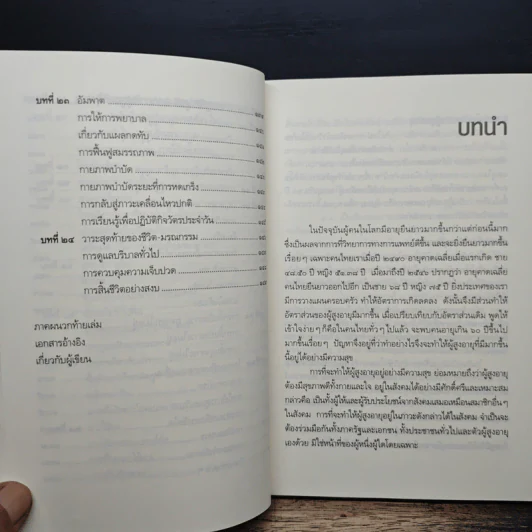 บทที่ ๒๓ อัมพาต
การให้การพยาบาล
เกี่ยวกับแผลกดทับ
การฟื้นฟูสมรรถภาพ
กายภาพบำบัด
กายภาพบำบัดระยะที่การหดเกร็ง
การกลับสู่ภาวะเคลื่อนไหวปกติ
การเรียนรู้เพื่อปฏิบัติกิจวัตรประจำวัน
บทที่ ๒๔ วาระสุดท้ายของชีวิต-มรณกรรม
การดูแลบริบาลทั่วไป
การควบคุมความเจ็บปวด
การสิ้นชีวิตอย่างสงบ
ภาคผนวกท้ายเล่ม
เอกสารอ้างอิง
เกี่ยวกับผู้เขียน
บทนำ
ในปัจจุบันผู้คนในโลกมีอายุยืนยาวมากขึ้นกว่าแต่ก่อนนี้มาก
ซึ่งเป็นผลจากการที่วิทยาการทางการแพทย์ดีขึ้น และจะยิ่งยืนยาวมากขึ้น
เรื่อยๆ เฉพาะคนไทยเราเมื่อปี ๒๔๙๐ อายุคาดเฉลี่ยเมื่อแรกเกิด ชาย
๔๘.๕๐ ปี หญิง ๕๑.๓๘ ปี เมื่อมาถึงปี ๒๕๔๖ ปรากฏว่า อายุคาดเฉลี่ย
คนไทยยืนยาวออกไปอีก เป็นชาย ๖๘ ปี หญิง ๗๕ ปี ยิ่งประเทศของเรา
มีการวางแผนครอบครัว ทำให้อัตราการเกิดลดลง ดังนั้นจึงมีส่วนทำให้
อัตราส่วนของผู้สูงอายุมีมากขึ้น เมื่อเปรียบเทียบกับอัตราส่วนเดิม พูดให้
เข้าใจง่ายๆ ก็คือในคนไทยทั่วๆ ไปแล้ว จะพบคนอายุเกิน ๖๐ ปีขึ้นไป
มากขึ้นเรื่อยๆ ปัญหาจึงอยู่ที่ว่าทำอย่างไรจึงจะทำให้ผู้สูงอายุที่มีมากขึ้น
นี้อยู่ได้อย่างมีความสุข
การที่จะทำให้ผู้สูงอายุอยู่อย่างมีความสุข ย่อมหมายถึงว่าผู้สูงอายุ
ต้องมีสุขภาพดีทั้งกายและใจ อยู่ในสังคมได้อย่างมีศักดิ์ศรีและเหมาะสม
กล่าวคือ เป็นทั้งผู้ให้และผู้รับประโยชน์จากสังคมเสมอเหมือนสมาชิกอื่นๆ
ในสังคม การที่จะทำให้ผู้สูงอายุอยู่ในภาวะดังกล่าวได้ในสังคม จำเป็นจะ
ต้องร่วมมือกันทั้งภาครัฐและเอกชน ทั้งประชาชนทั่วไปและตัวผู้สูงอายุ
เองด้วย มิใช่หน้าที่ของผู้หนึ่งผู้ใดโดยเฉพาะ